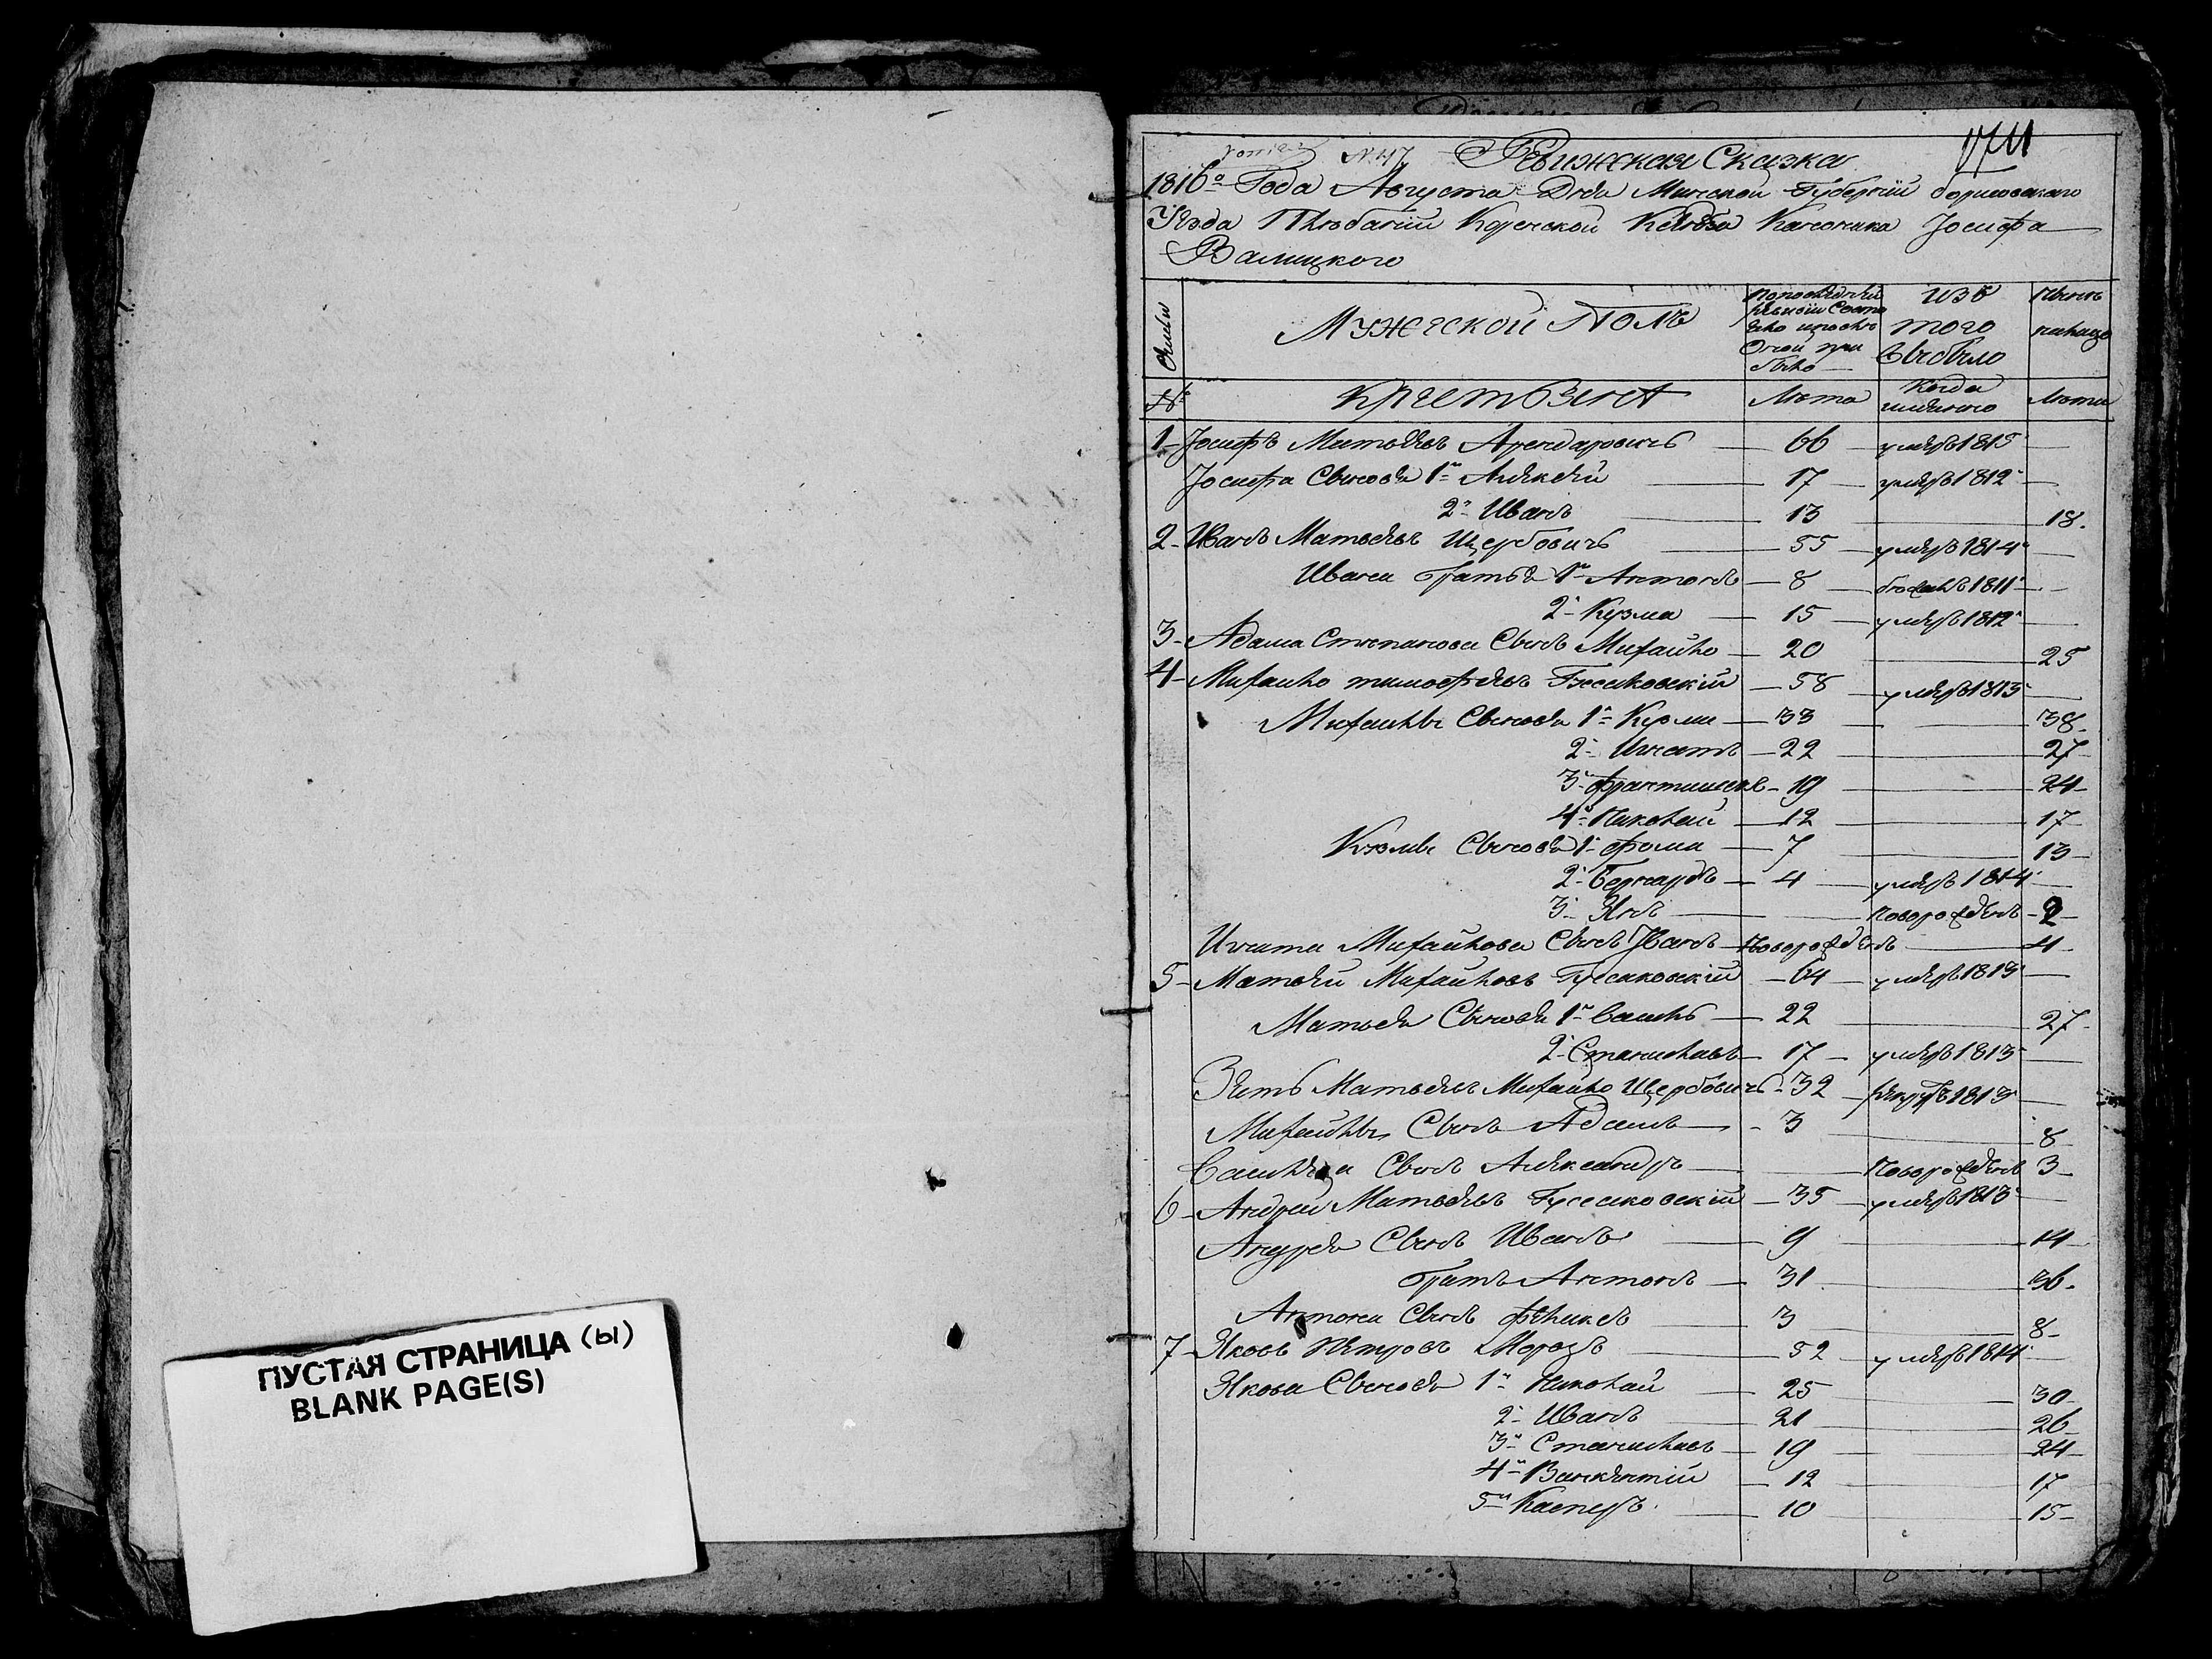 ПУСТАЯ СТРАНИЦА (Ы)
BLANK PAGE(S)
Ревижская Сказка
1816го Года Августа Дня Минской Губернїи Борисовского
Уезда Плебанїи Коренской Ксендза Каноника Іосифа
Валицкого
Семьи
Мужеской Полъ
По последней ревизїи состояло и после оной прибыло
изъ того выбыло
Ныне налицо
№
Крестьяне
Лета
Когда именно
Лета
1 Іосифъ Матвеевъ Арендаровичъ 66 умеръ 1815
Іосифа Сыновья 1й Алексей 17 умеръ 1812
2й Иванъ 13 18
2 Иванъ Матвеевъ Щербовичъ 55 умеръ 1814
Ивана Братья 1й Антонъ 8 1811
2й Кузма 15 умеръ 1812
3 Адама Степанова Сынъ Михайло 20 25
4 Михайло Тимофеевъ Гусаковскїй 58 умеръ 1813
Михайлы Сыновья 1й Кузма 33 38
2й Игнатъ 22 27
3й Францишекъ 19 24
4й Николай 12 17
Кузмы Сыновья 1й Фома 7 13
2й Бернардъ 4 умеръ 1814
3й Янъ новорожденъ 2
Игната Михайлова Сынъ Иванъ новорожденъ 4
5 Матвей Михайловъ Гусаковскїй 64 умеръ 1813
Матвея Сыновья 1й 22 27
2й Станиславъ 17 умеръ 1813
Зять Матвеевъ Михайло Щербовичъ 32 рекрут 1813
Михайлы Сынъ Адамъ 3 8
Сынъ Александръ новорожденъ 3
6 Андрей Матвеевъ Гусаковскїй 35 умеръ 1813
Андрея Сынъ Иванъ 9 14
Братъ Антонъ 31 36
Антона Сынъ Феликсъ 3 8
7 Яковъ Петровъ Морозъ 52 умеръ 1814
Якова Сыновья 1й Николай 25 30
2й Иванъ 21 26
3й Станиславъ 19 24
4й Викентїй 12 17
5й Касперъ 10 15